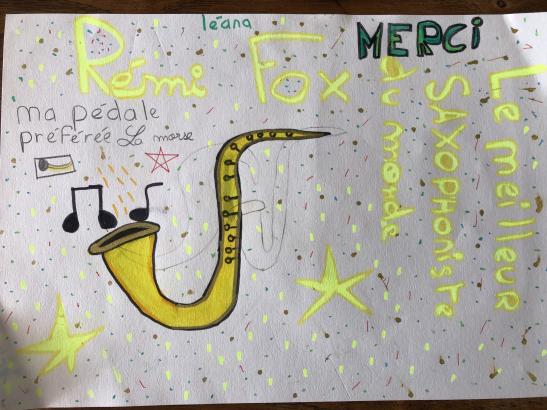 léana
MERCi
Rémi Fox
ma pédale
préférée La morse
Le meilleur
SAXOPHONiste
du monde